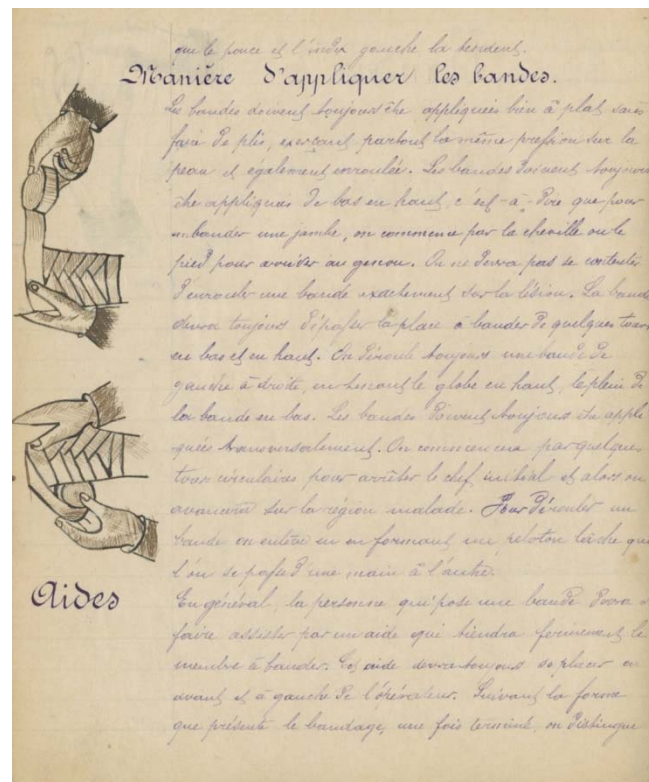 que le pouce et l'index gauche la tendent.
Manière d'appliquer les bandes.
Les bandes doivent toujours être appliquées bien à plat sans
faire de plis, exerçant partout la même pression sur la
peau et également enroulée. Les bandes doivent toujours
être appliquées de bas en haut, c'est-à-dire que pour
enbander une jambe, on commence par la cheville ou le
pied pour arriver au genou. On ne devra pas se contenter
d'enrouler une bande exactement sur la lésion. La bande
devra toujours dépasser la place à bander de quelques tours
en bas et en haut. On déroule toujours une bande de
gauche à droite, en tenant le globe en haut, le plein de
la bande en bas. Les bandes doivent toujours être appli
quées transversalement. On commencera par quelques
tours circulaires pour arrêter le chef initial et alors on
avancera sur la région malade. Pour dérouler un
bande on en formant un peloton lâche que
l'on se passe d'une main à l'autre.
Aides
En général, la personne qui pose une bande devra
faire assister par un aide qui tiendra fermement le
membre à bander. Cet aide devra toujours se placer en
avant et à gauche de l'opérateur. Suivant la forme
que présente le bandage, une fois terminé, on distingue